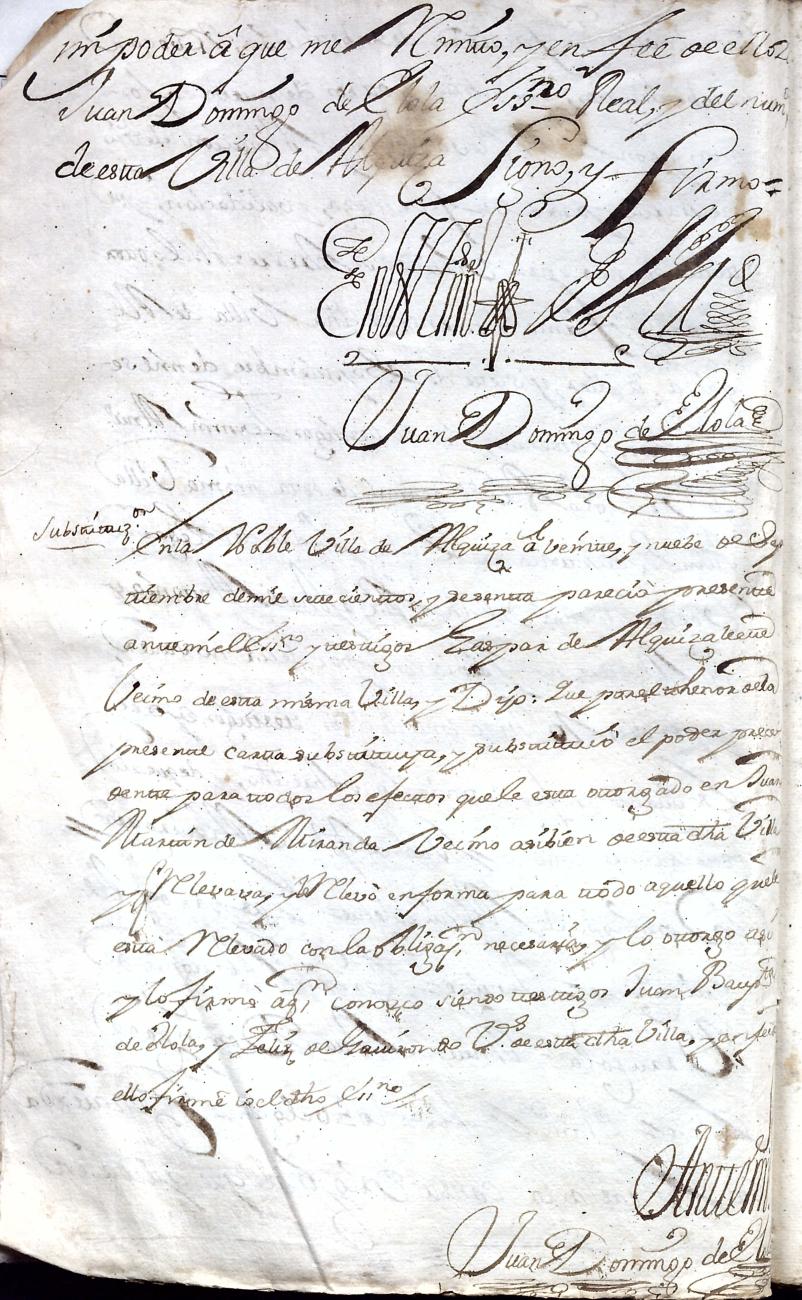 mi poder â que me Rimito, y en feè de ello
Juan Domingo de Elola Essno Real, y del num
de esta Villa de Alquiza Signo, y Firmo=
En testim de Verd
Juan Domingo de Elola
Substituzon
En la Noble Villa de Alquiza â veinte, y nuebe de Sep
tiembre de mil setecientos, y sesenta pareciò presente
ante mi el Essno y testigos Gaspar de Alquizalete
Vecino de esta misma Villa, y Dijo: Que por el thenor de la
presente carta substituya, y substituiò el poder prece
dente para todos los efectos que le esta otorgado en Juan
Martin de Miranda Vecino asibien de esta dha Villa
y Rlevava, y Rlevò en forma para todo aquello que le
esta Rlevado con la obligazn necesaria, y lo otorgo asi
y lo firmè â qn conozco siendo testigos Juan Baupta
de Elola, y Felix de Garizondo Vs de esta dha Villa, y en feè
ello firmè io el dho Essno
Ante mi
Juan Domingo de El